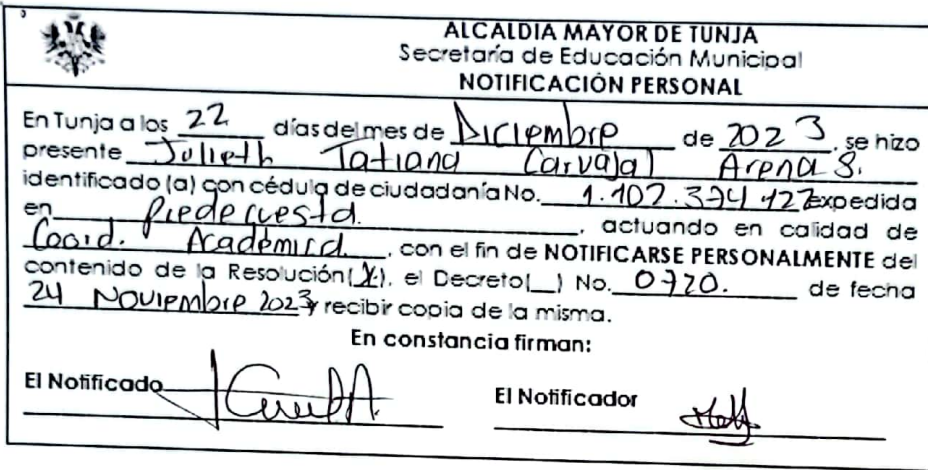 ALCALDIA MAYOR DE TUNJA
Secretaría de Educación Municipal
NOTIFICACIÓN PERSONAL
En Tunja a los 22 días del mes de Diciembre de 2023, se hizo
presente Julieth Tatiana Carvajal Arenas.
identificado (a) con cédula de ciudadanía No. 1.102.374.427 expedida
en Piedecuesta., actuando en calidad de
Coord. Académica, con el fin de NOTIFICARSE PERSONALMENTE del
contenido de la Resolución(X), el Decreto(__) No. 0720. de fecha
24 Noviembre 2023 y recibir copia de la misma.
En constancia firman:
El Notificado
El Notificador